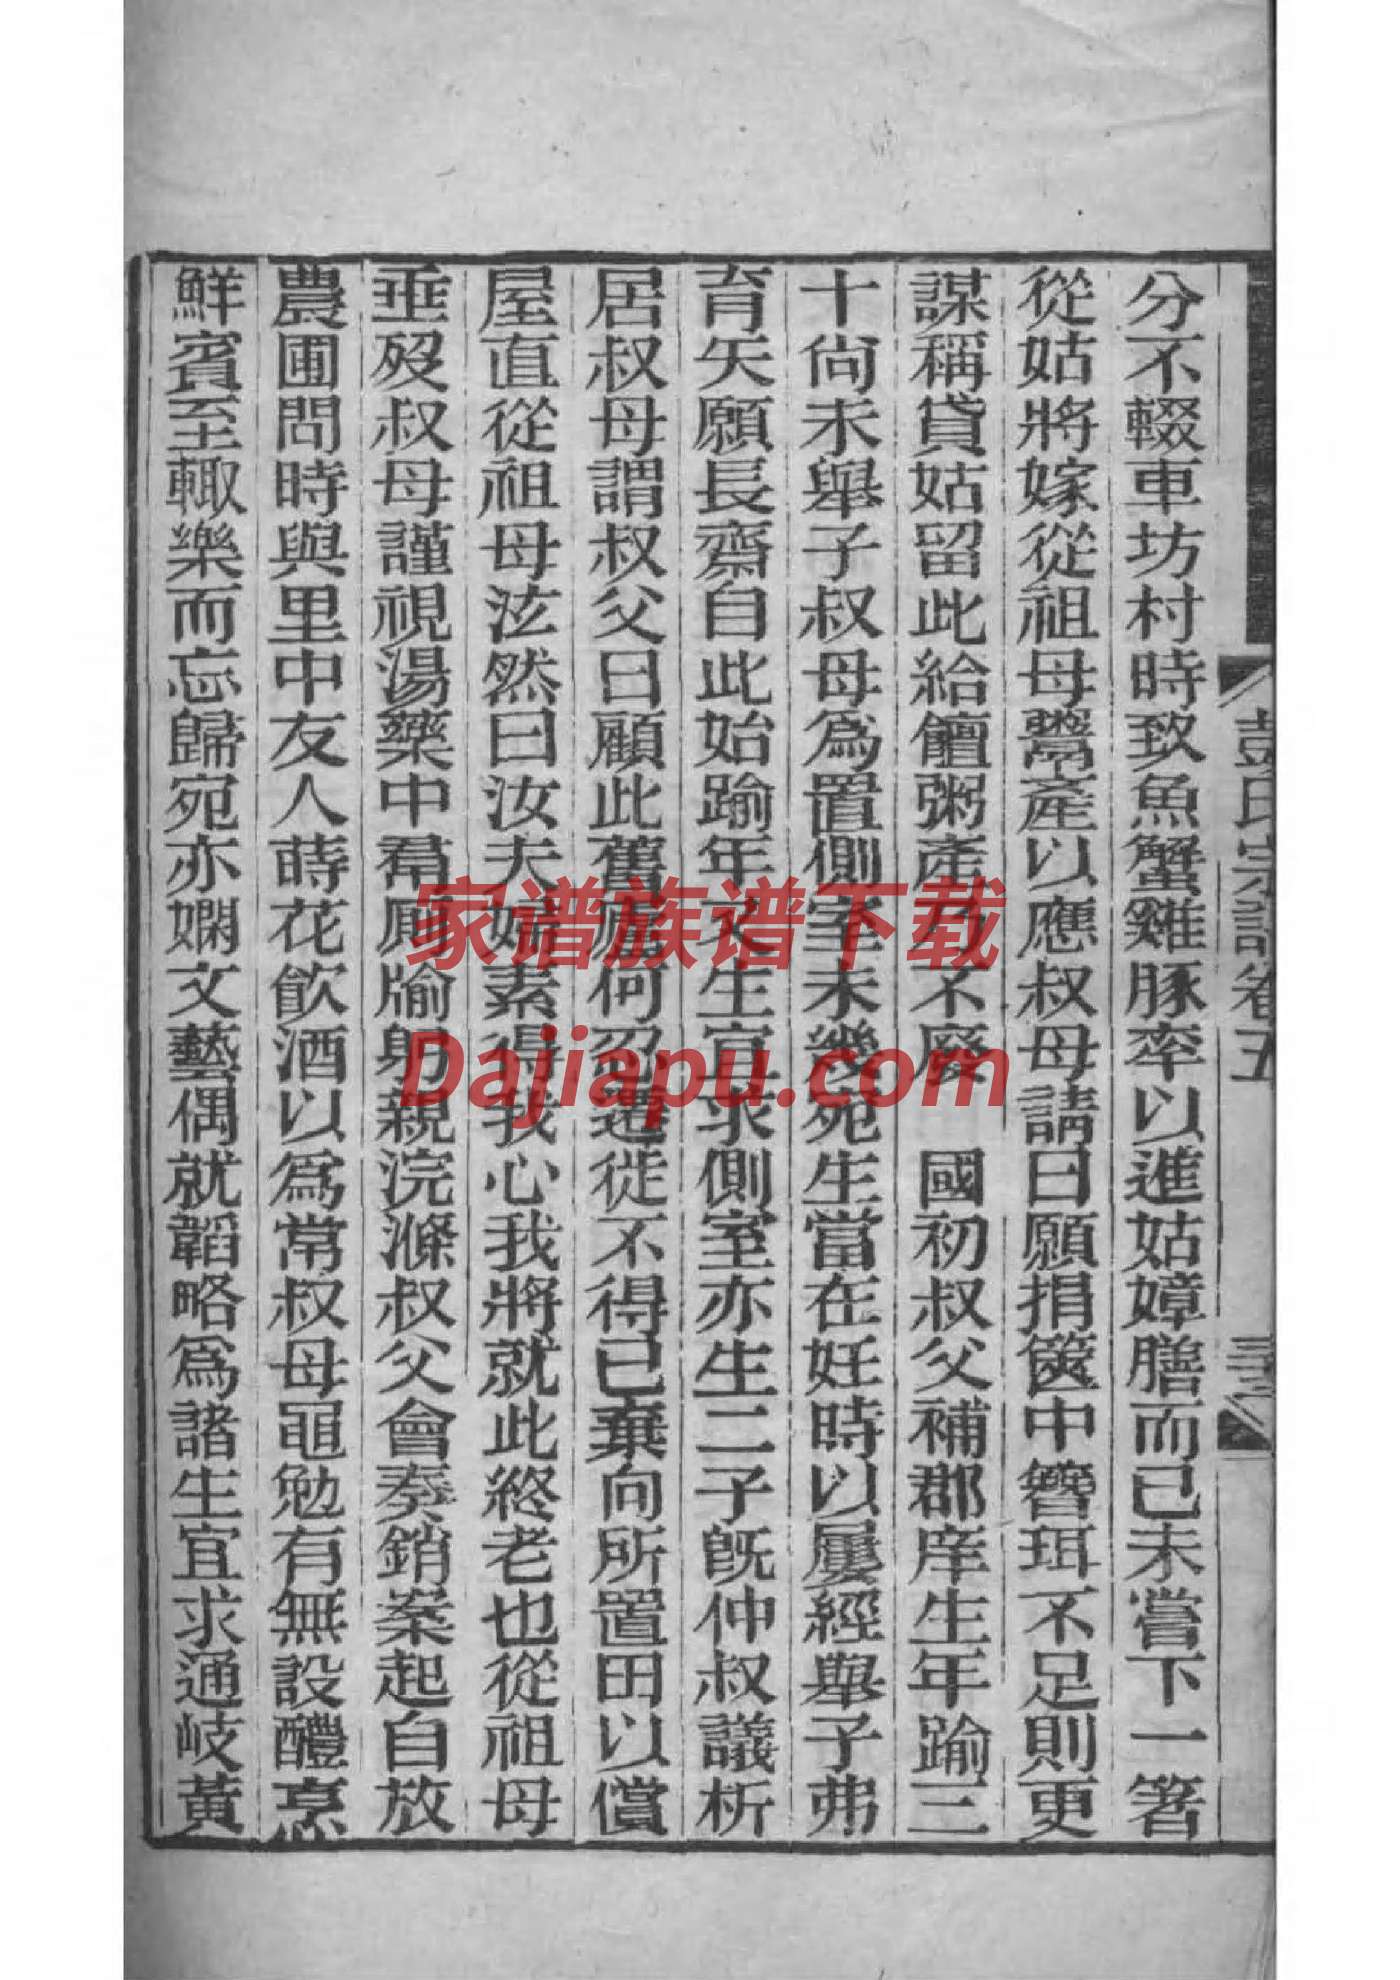 彭氏宗譜卷五
分不輟車坊村時致魚蟹雞豚率以進姑嫜膳而已未嘗下一箸
從姑將嫁從祖母鬻產以應叔母請曰願捐篋中簪珥不足則更
謀稱貸姑留此給饘粥產乃不廢 國初叔父補郡庠生年踰三
十尙未舉子叔母爲置側室未幾宛生當在妊時以屢經舉子弗
育矢願長齋自此始踰年又生宜求側室亦生二子旣仲叔議析
居叔母謂叔父曰顧此舊廬何忍遷徙不得已棄向所置田以償
屋直從祖母泫然曰汝夫婦素得我心我將就此終老也從祖母
垂歿叔母謹視湯藥中帬廁牏躬親浣滌叔父會奏銷案起自放
農圃間時與里中友人蒔花飮酒以爲常叔母黽勉有無設醴烹
鮮賓至輙樂而忘歸宛亦嫻文藝偶就韜略爲諸生宜求通岐黃
家谱族谱下载
Dajiapu.com